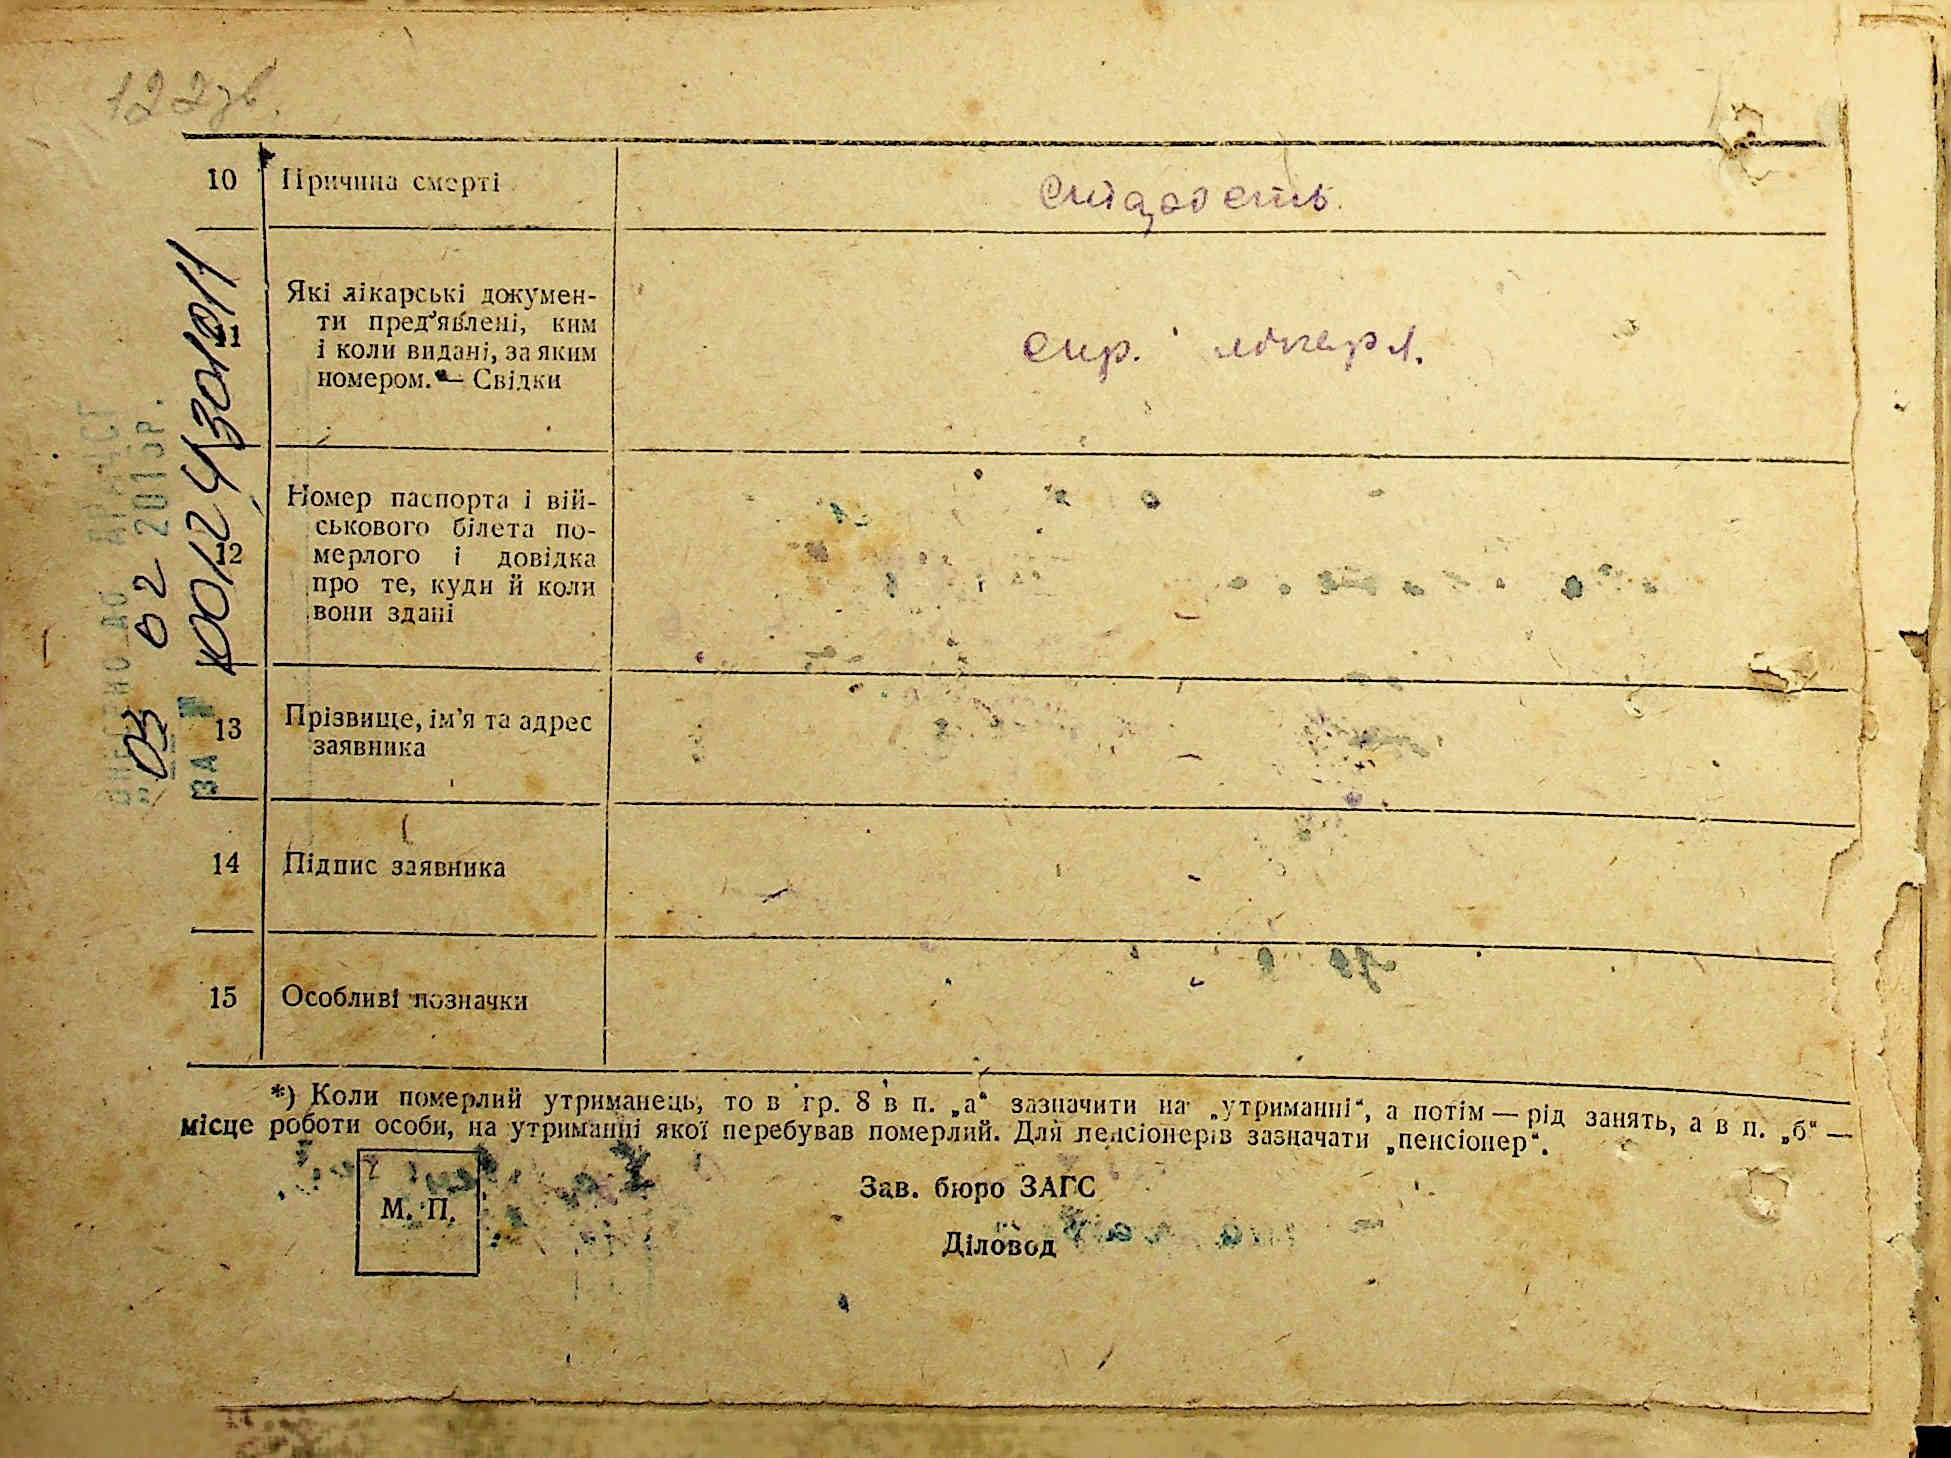 122 зв.
10 Причина смерті
старость.
11 Які лікарські докумен-
ти пред'явлені, ким
і коли видані, за яким
номером. — Свідки
12 Номер паспорта і вій-
ськового білета по-
мерлого і довідка
про те, куди й коли
вони здані
13 Прізвище, ім'я та адрес
заявника
14 Підпис заявника
15 Особливі позначки
*) Коли померлий утриманець, то в гр. 8 в п. „а“ зазначити на „утриманні“, а потім — рід занять, а в п. „б“ —
місце роботи особи, на утриманні якої перебував померлий. Для пенсіонерів зазначати „пенсіонер“.
М. П.
Зав. бюро ЗАГС
Діловод
ВНЕСЕНО ДО
" 03 " 02 2015р.
ЗА № 00124301011